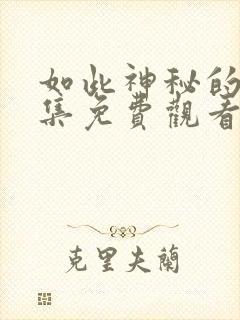 如此神秘的
集免費觀看
克里夫蘭